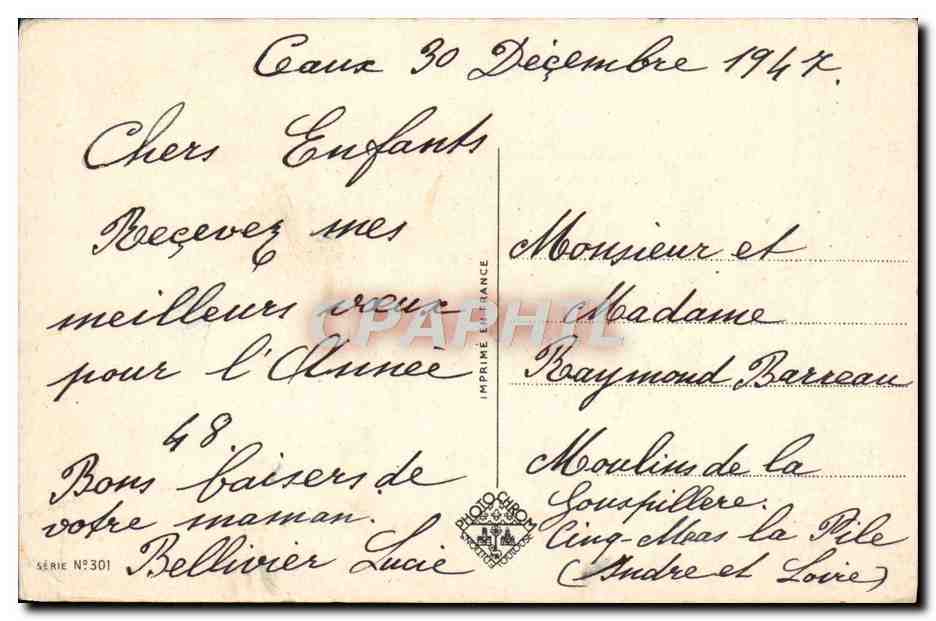 Ceaux 30 Déçembre 1947.
Chers Enfants
Reçevez mes
meilleurs vœux
pour l'Année
48.
Bons baisers de
votre maman.
Bellivier Lucie
SÉRIE Nº 301
IMPRIMÉ EN FRANCE
CPAPHIL
PHOTOCHROM
TOULOUSE
Monsieur et
Madame
Raymond Barreau
Moulins de la
Gouspillere.
Cinq-Mas la Pile
(Indre et Loire)